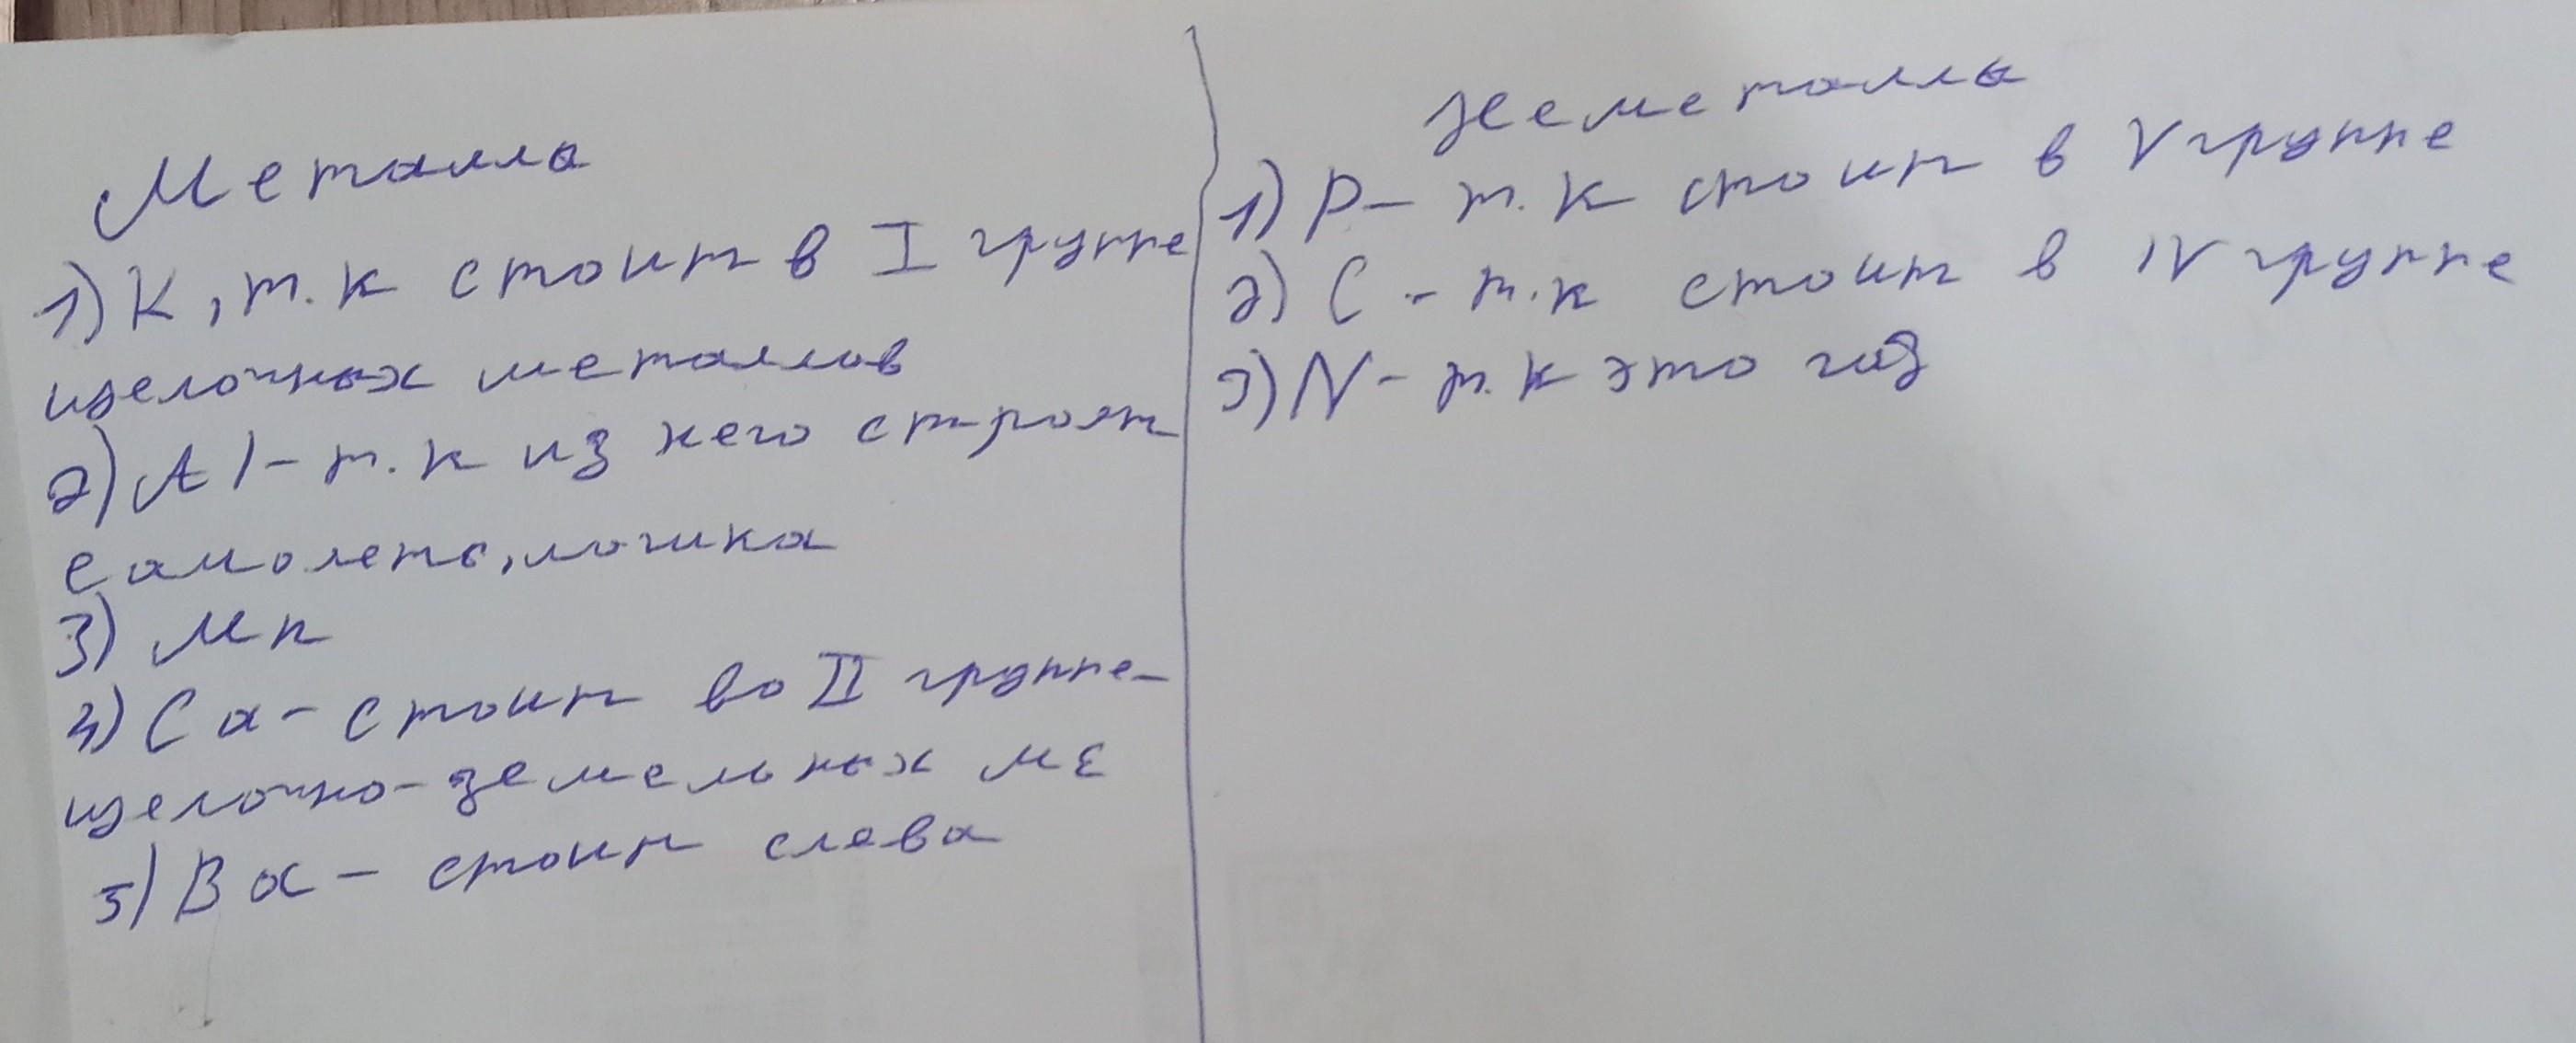 Металлы
1) К, т.к стоит в I группе
щелочных металлов
2) Al - т.к из него строят
самолеты, ложка
3) Mn
4) Ca - стоит во II группе -
щелочно-земельных ме
5) Ba - стоит слева
Неметаллы
1) P - т.к стоит в V группе
2) C - т.к стоит в IV группе
3) N - т.к это газ